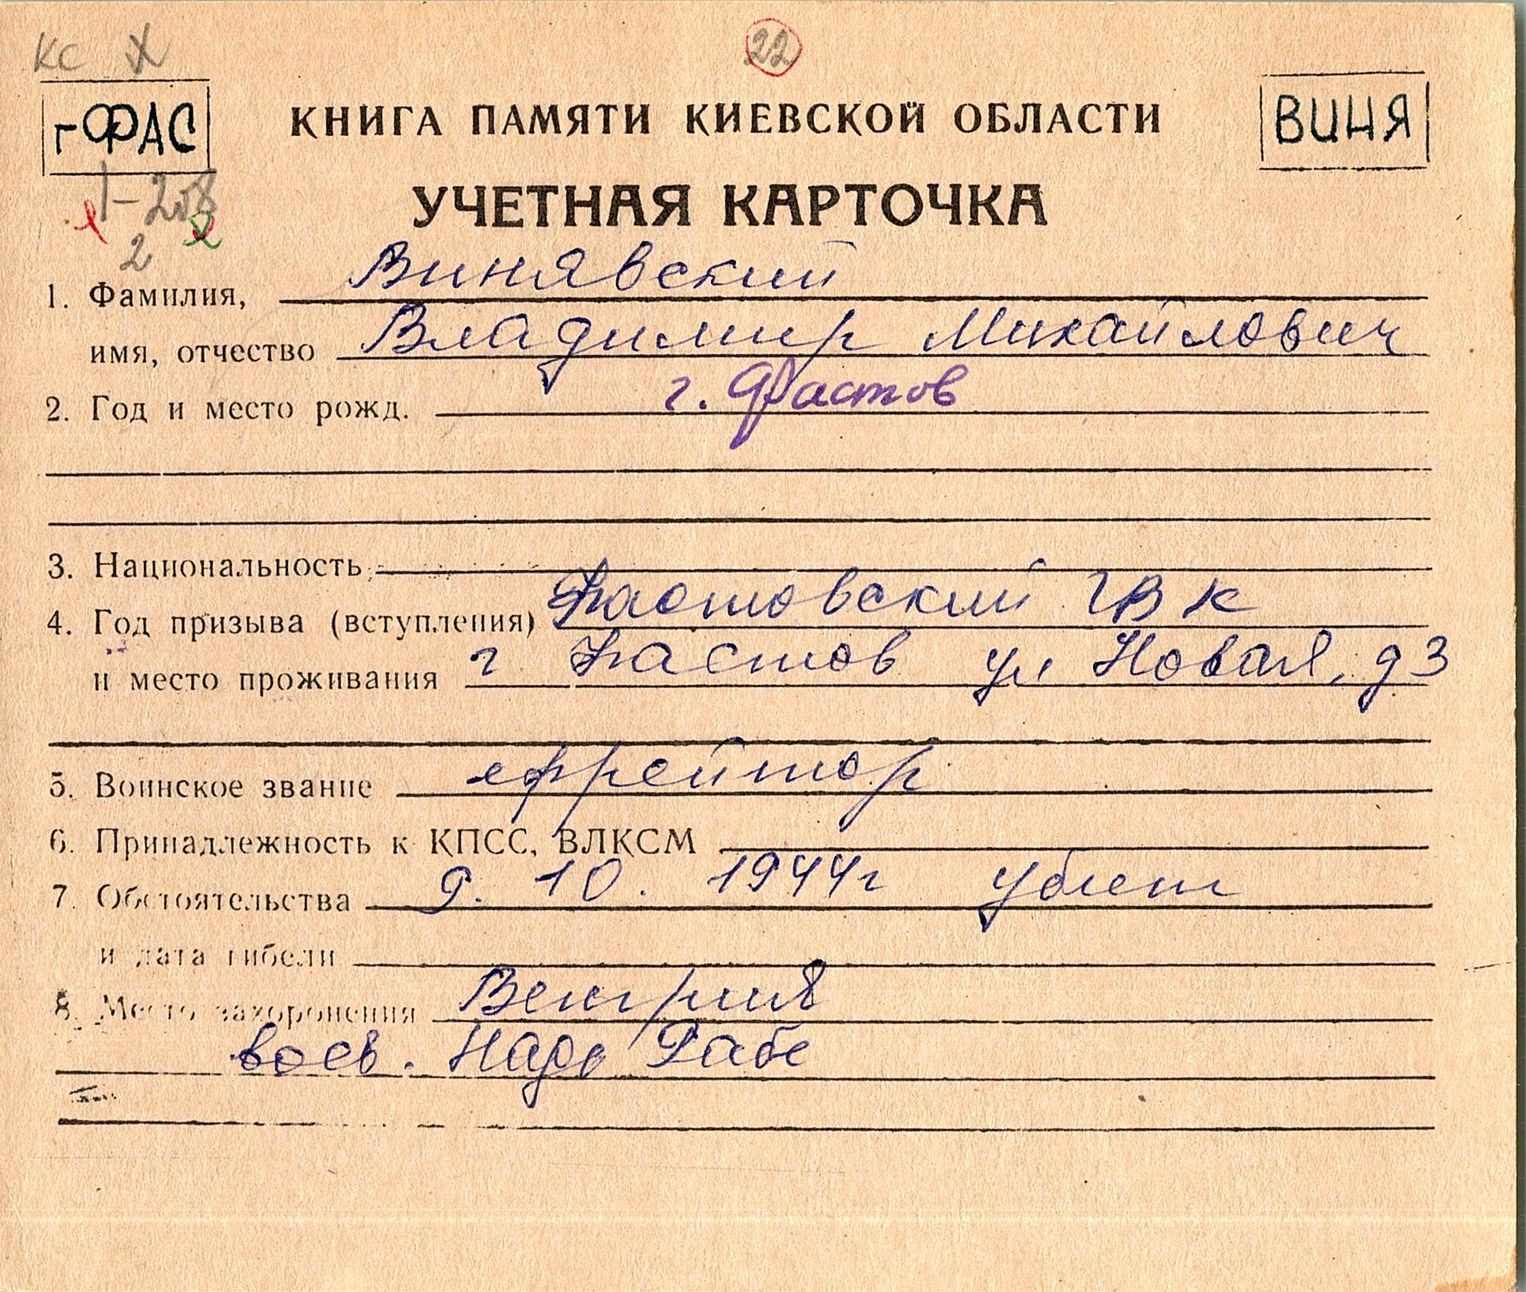 КС X
22
гФАС
КНИГА ПАМЯТИ КИЕВСКОЙ ОБЛАСТИ
ВИНЯ
1-208
2
УЧЕТНАЯ КАРТОЧКА
1. Фамилия, Винявский
имя, отчество Владимир Михайлович
2. Год и место рожд. г. Фастов
3. Национальность
4. Год призыва (вступления) Фастовский ГВК
и место проживания г Фастов ул Новая, д 3
5. Воинское звание ефрейтор
6. Принадлежность к КПСС, ВЛКСМ
7. Обстоятельства 9. 10. 1944г убит
и дата гибели
8. Место захоронения Венгрия
воев. Надь Рабе